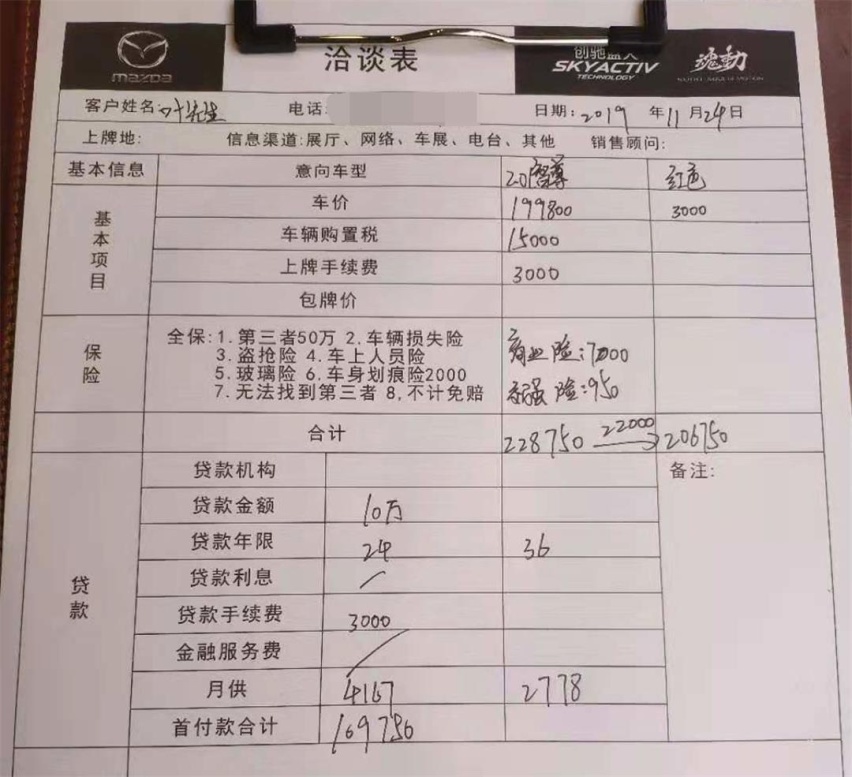 mazda
洽谈表
SKYACTIV
TECHNOLOGY
魂動
客户姓名 叶先生 电话: 日期: 2019 年 11 月 24 日
上牌地: 信息渠道:展厅、网络、车展、电台、其他 销售顾问:
基本信息 意向车型 红色
基本项目
车价 199800 3000
车辆购置税 15000
上牌手续费 3000
包牌价
保险
全保:1.第三者50万 2.车辆损失险
3.盗抢险 4.车上人员险
5.玻璃险 6.车身划痕险2000
7.无法找到第三者 8,不计免赔
商业险:7000
交强险:950
合计 228750 22000 206750
贷款
贷款机构 备注:
贷款金额 10万
贷款年限 24 36
贷款利息
贷款手续费 3000
金融服务费
月供 4167 2778
首付款合计 169750